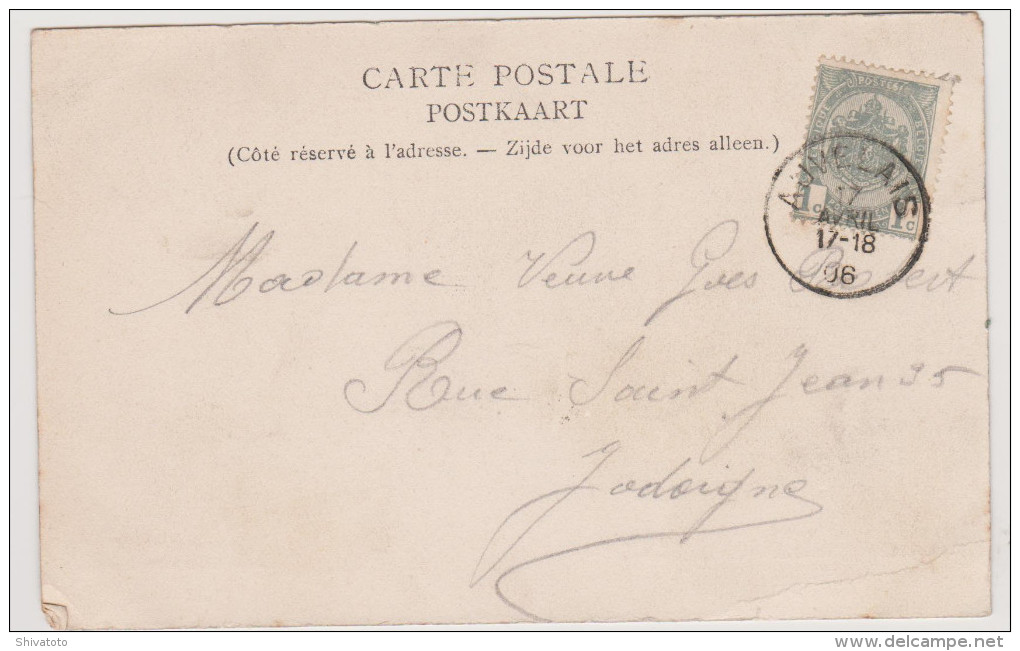 CARTE POSTALE
POSTKAART
(Côté réservé à l'adresse. — Zijde voor het adres alleen.)
POSTES
1c 1c
AUVELAIS
17
AVRIL
17-18
06
Madame Veuve Yves
Rue Saint Jean 35
Jodoigne
Shivatoto
www.delcampe.net